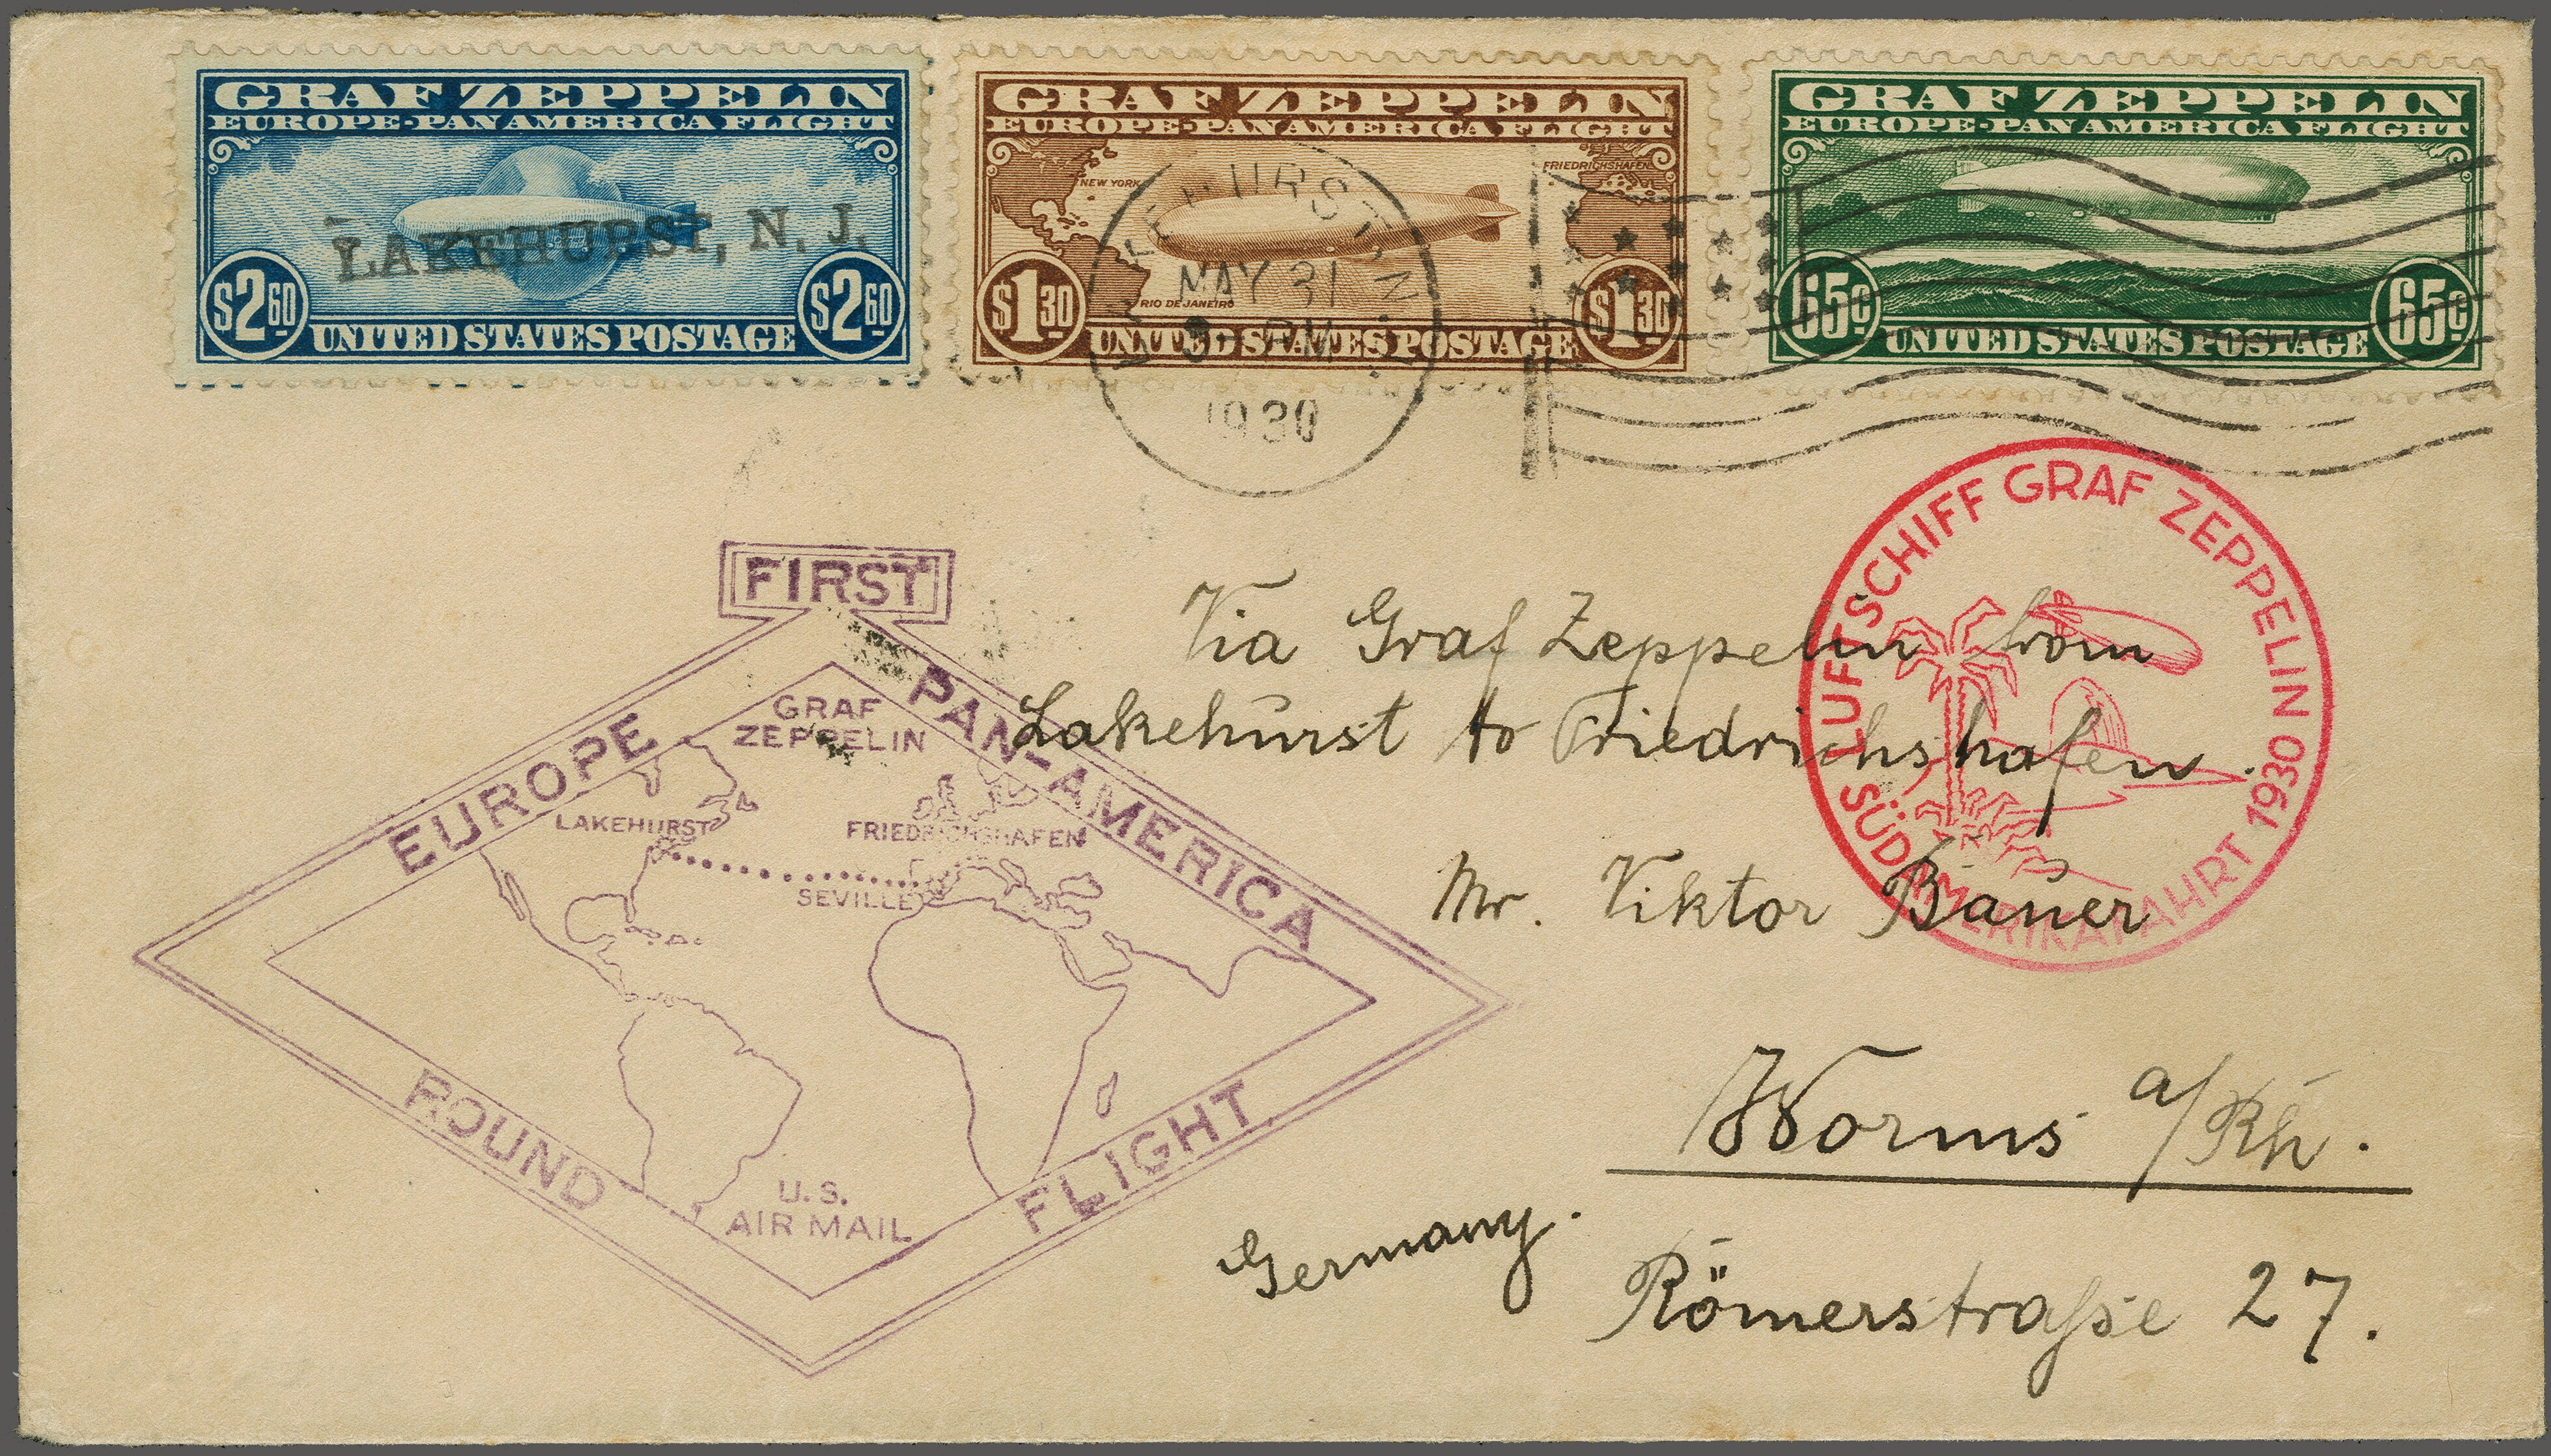 GRAF ZEPPELIN
EUROPE-PAN AMERICA FLIGHT
LAKEHURST, N. J.
$2 60
$2 60
UNITED STATES POSTAGE
GRAF ZEPPELIN
EUROPE-PAN AMERICA FLIGHT
NEW YORK
FRIEDRICHSHAFEN
RIO DE JANEIRO
$1 30
$1 30
UNITED STATES POSTAGE
GRAF ZEPPELIN
EUROPE-PAN AMERICA FLIGHT
65c
65c
UNITED STATES POSTAGE
LAKEHURST N. J.
MAY 31
PM
1930
FIRST
EUROPE
PAN-AMERICA
GRAF
ZEPPELIN
LAKEHURST
FRIEDRICHSHAFEN
SEVILLE
ROUND
FLIGHT
U. S.
AIR MAIL
LUFTSCHIFF GRAF ZEPPELIN
SÜDAMERIKAFAHRT 1930
Via Graf Zeppelin from
Lakehurst to Friedrichshafen.
Mr. Viktor Bauer
Worms a/Rh.
Germany.
Römerstraße 27.